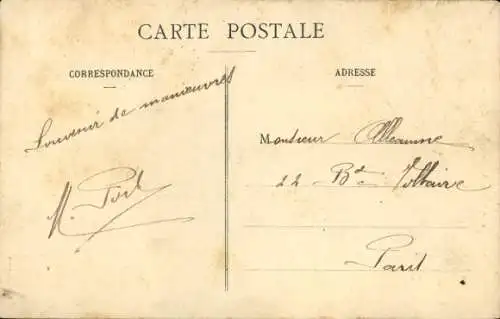 CARTE POSTALE
CORRESPONDANCE
Souvenir de manœuvres
ADRESSE
Monsieur
22 Bd Voltaire
Paris